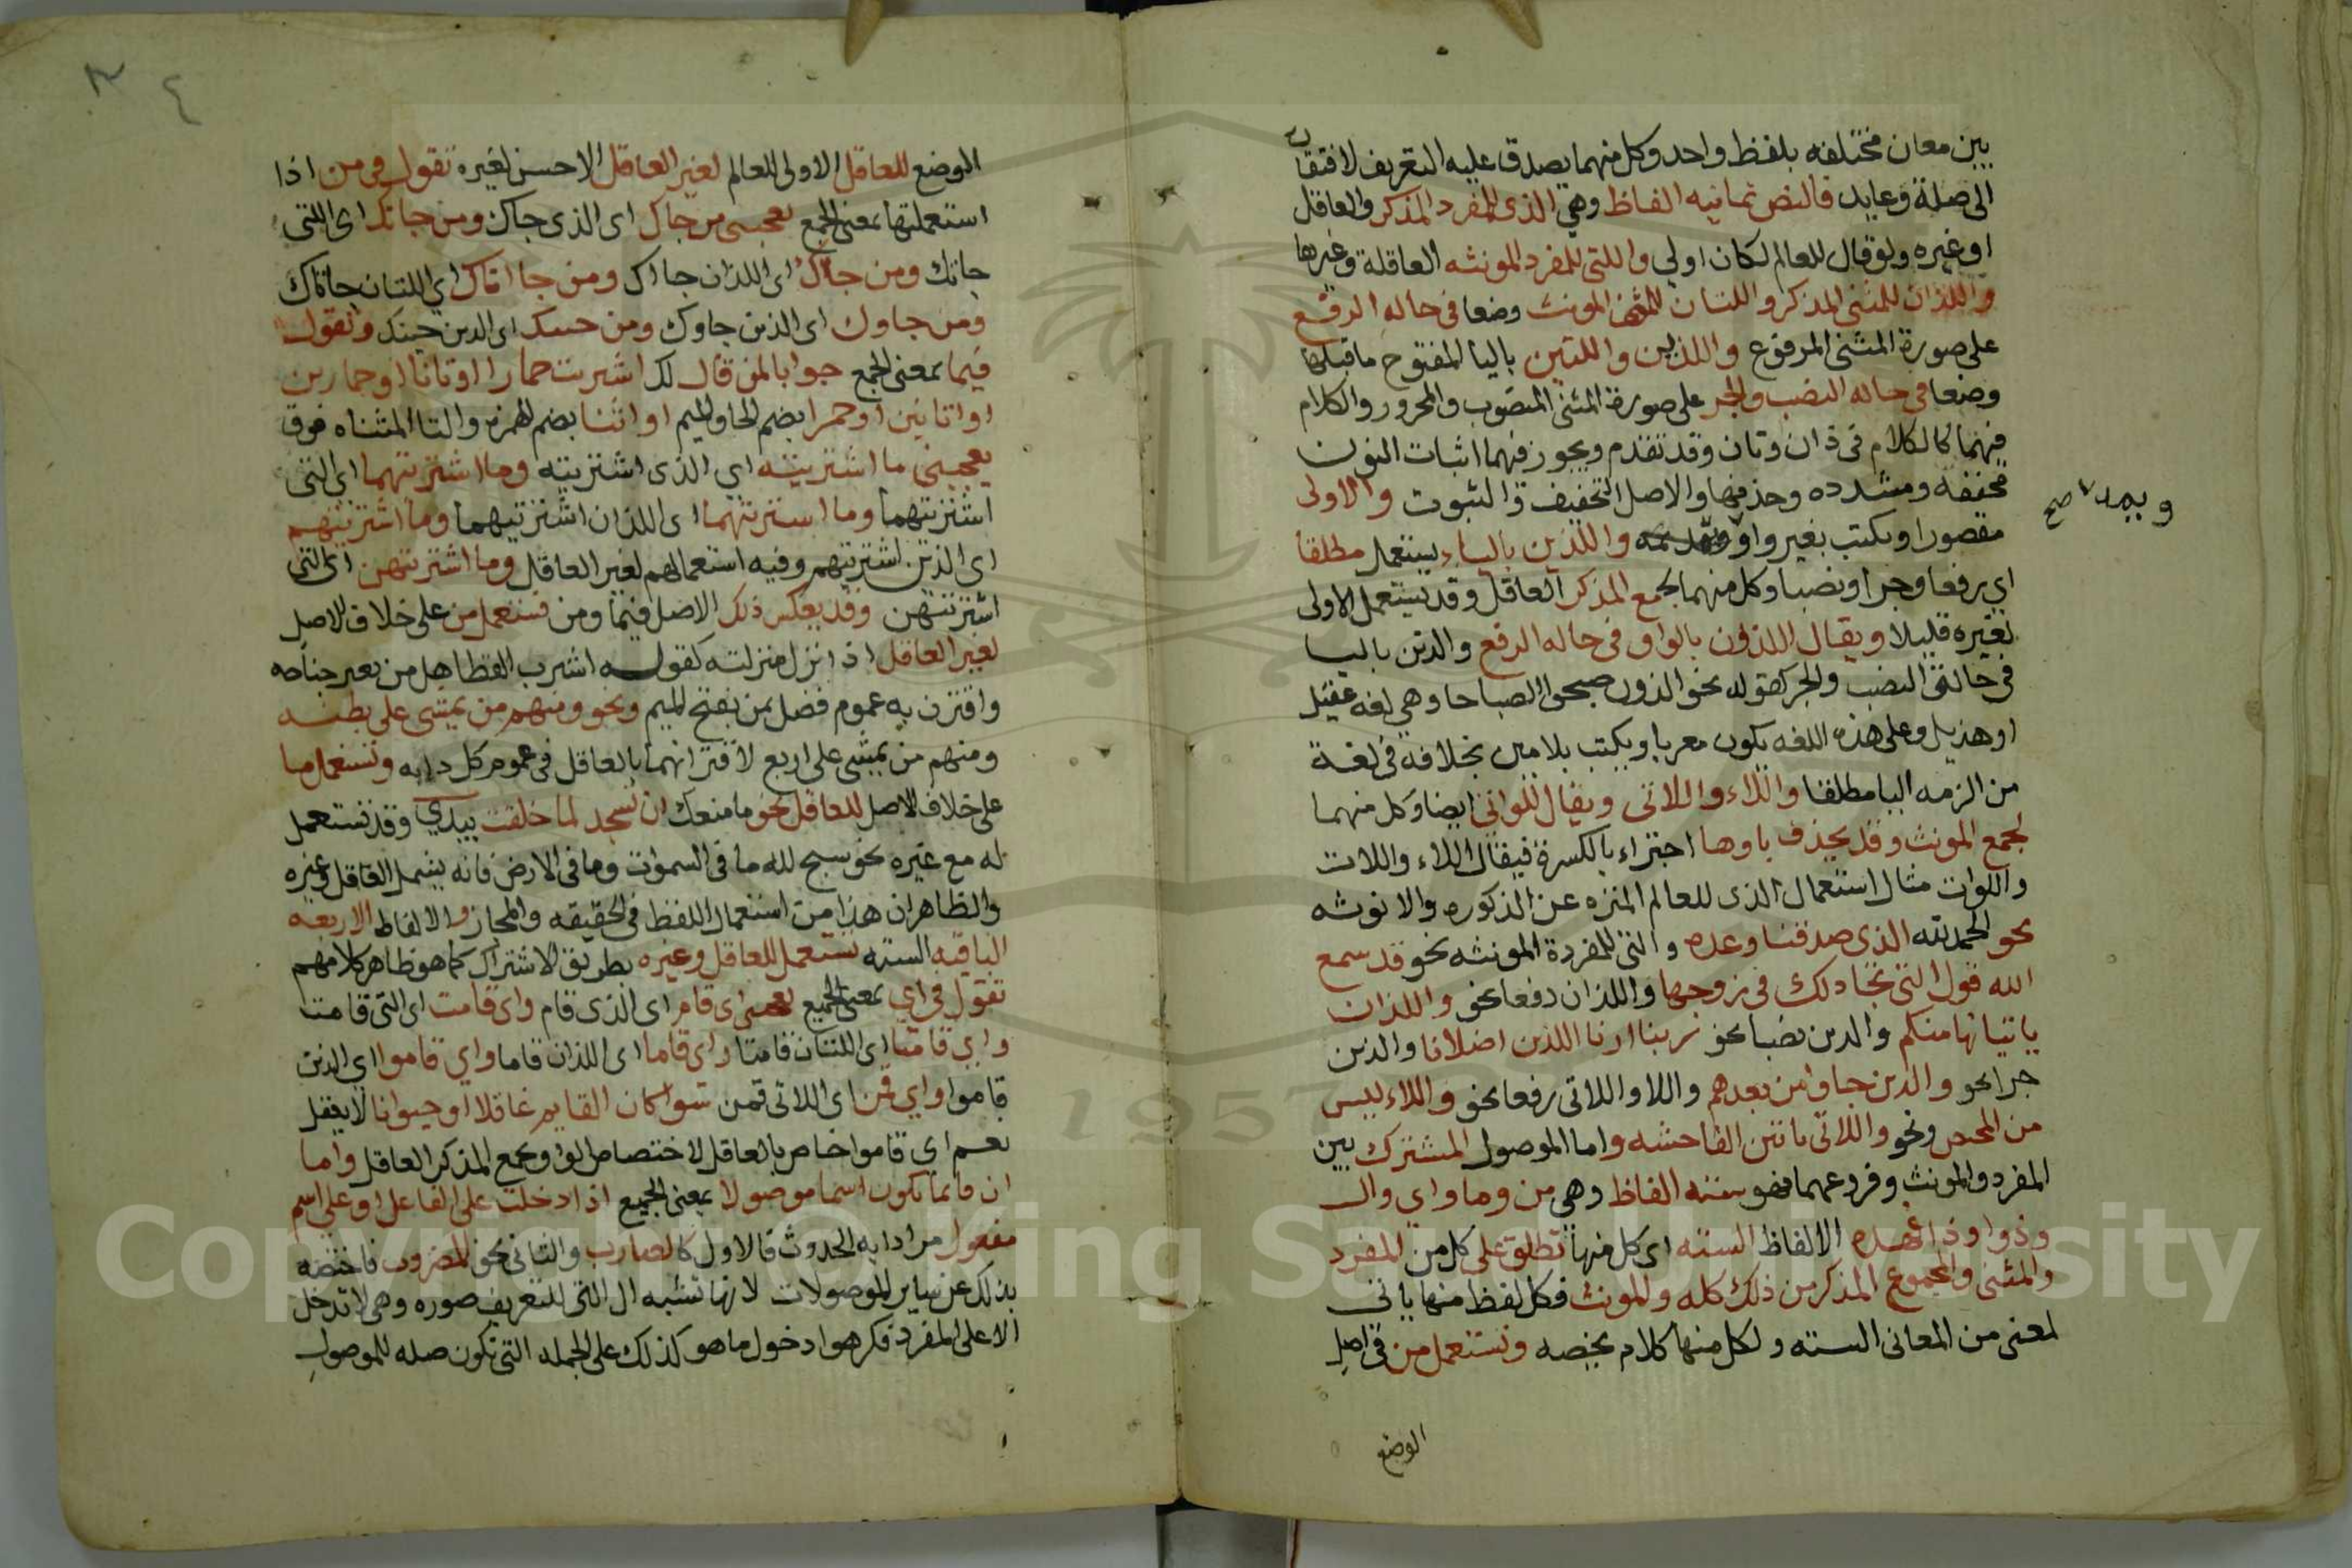 بين معان مختلفه بلفظ واحد وكل منهما يصدق عليه التعريف لافتقار
الى صلة وعايد فالنص ثمانيه الفاظ وهي الذى للمفرد المذكر والعاقل
او غيره ولو قال للعالم لكان اولي واللتى للمفرد المونثه العاقلة وغيرها
واللذان للمثنى المذكر واللتان للمثنى المونث وضعا فى حالة الرفع
على صورة المثنى المرفوع واللذين واللتين باليا المفتوح ما قبلها
وضعا فى حاله النصب والجر على صورة المثنى المنصوب والمجرور والكلام
فيهما كالكلام فى ذان وتان وقد تقدم ويجوز فيهما اثبات النون
مخففه ومشدده وحذفها والاصل التخفيف والثبوت والاولى
ويمد صح
مقصورا ويكتب بغير واو والذين بالياء يستعمل مطلقا
اي رفعا وجرا ونصبا وكل منهما لجمع المذكر العاقل وقد يستعمل الاولى
لغيره قليلا ويقال اللذون بالواو فى حاله الرفع والذين باليا
فى حالتى النصب والجر كقوله نحو الذون صبحوا الصباحا وهي لغه عقيل
او هذيل وعلى هذه اللغه يكون معربا ويكتب بلامين بخلافه فى لغة
من الزمه اليا مطلقا واللاء واللاتى ويقال اللواتى ايضا وكل منهما
لجمع المونث وقد يحذف ياوها اجتزاء بالكسرة فيقال اللاء واللات
واللوات مثال استعمال الذى للعالم المنزه عن الذكوره والانوثه
نحو الحمد لله الذى صدقنا وعده والتى للمفردة المونثه نحو قد سمع
الله قول التى تجادلك فى زوجها واللذان رفعا نحو واللذان
ياتيانها منكم والدين نصبا نحو ربنا ارنا اللذين اضلانا والذين
جرا نحو والذين جاوا من بعدهم واللا واللاتى رفعا نحو واللاء ييس
من المحيض ونحو واللاتى ياتين الفاحشه واما الموصول المشترك بين
المفرد والمونث وفروعهما فهو سته الفاظ وهى من وما واي وال
وذوا وذا فهذه الالفاظ السته اى كل منها تطلق على كل من المفرد
والمثنى والمجموع المذكر من ذلك كله والمونث فكل لفظ منها ياتى
لمعنى من المعانى السته ولكل منها كلام يخصه وتستعمل من فى اصل
الوضع
٤
الوضع للعاقل الاولى للعالم لغير العاقل الاحسن لغيره تقول فى من اذا
استعملتها بمعنى الجمع يعجبنى من جاك اى الذى جاك ومن جاتك اى اللتى
جاتك ومن جااك اى اللذان جااك ومن جااتاك اي اللتان جاتاك
ومن جاوك اى الذين جاوك ومن جينك اى الدين جينك وتقول
فيما بمعنى الجمع جوابا لمن قال لك اشتريت حمارا او تانا او حمارين
او اتانين او حمرا بضم الحا والميم او اتنا بضم الهمزه والتا المثناه فوق
يعجبنى ما اشتريته اي الذى اشتريته وما اشتريتهما اي التى
اشتريتهما وما اشتريتهما اى اللذان اشتريتهما وما اشتريتهم
اى الذين اشتريتهم وفيه استعمالهم لغير العاقل وما اشتريتهن اى التى
اشتريتهن وقد يعكس ذلك الاصل فيما ومن فتستعمل من على خلاف الاصل
لغير العاقل اذا نزل منزلته كقوله اشرب القطا هل من يعير جناحه
واقترن به عموم فضل بمن بفتح الميم ونحو ومنهم من يمشى على بطنه
ومنهم من يمشى على اربع لاقترانهما بالعاقل فى عموم كل دابه وتستعمل ما
على خلاف الاصل للعاقل نحو ما منعك ان تسجد لما خلقت بيدي وقد تستعمل
له مع غيره نحو سبح لله ما فى السموات وما فى الارض فانه يشمل العاقل وغيره
والظاهر ان هذا من استعمال اللفظ فى الحقيقه والمجاز والالفاظ الاربعه
الباقيه السته تستعمل للعاقل وغيره بطريق الاشتراك كما هو ظاهر كلامهم
تقول فى اي بمعنى الجميع يعجبنى اى قام اى الذى قام واى قامت اى التى قامت
واي قامتا اى اللتان قامتا واى قاما اى اللذان قاما واي قاموا اي الذين
قاموا واي قمن اى اللاتى قمن سوا كان القايم عاقلا او حيوانا لا يعقل
نعم اى قاموا خاص بالعاقل لاختصاص الواو بجمع المذكر العاقل واما
ال فانما تكون اسما موصولا بمعنى الجميع اذا دخلت على الفاعل او على اسم
مفعول مرادا به الحدوث فالاول كالضارب والثانى نحو المضروب فاختصه
بذلك عن ساير الموصولات لانها تشبه ال التى للتعريف صوره وهى لا تدخل
الا على المفرد فكرهوا دخول ما هو كذلك على الجمله التى تكون صله للموصول
Copyright © King Saud University
1957